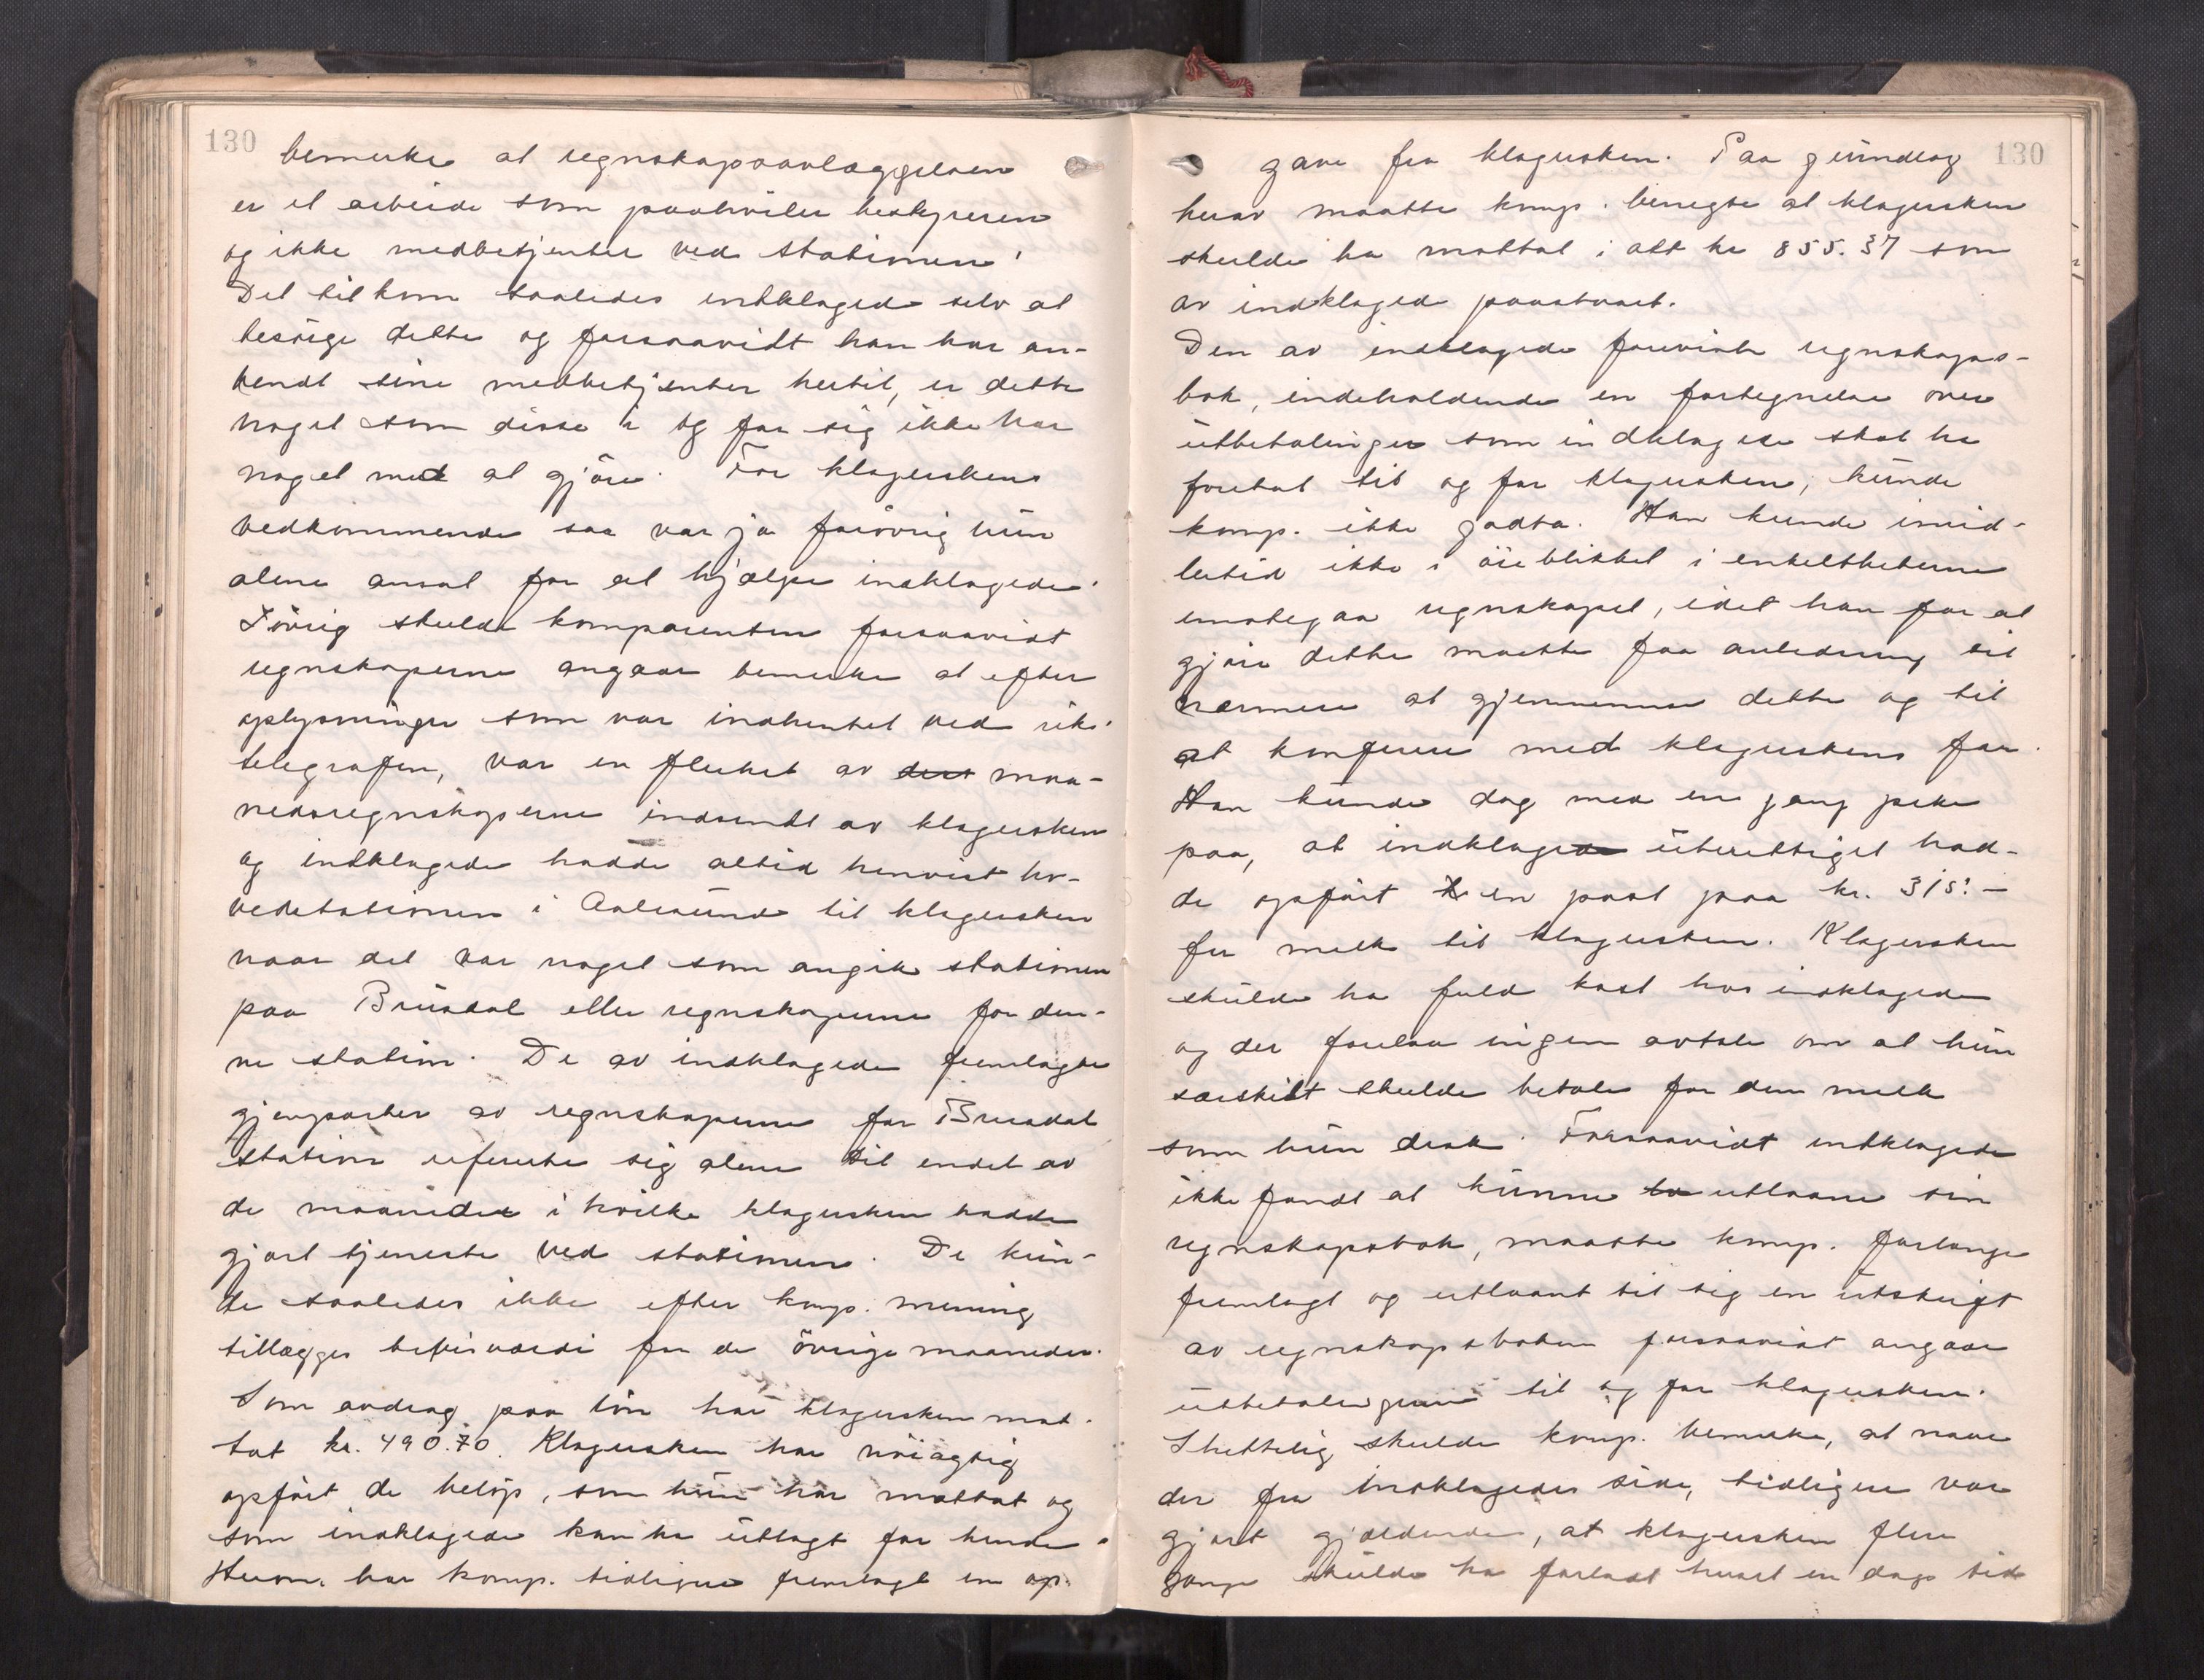 130
bemerke at regnskapsavlæggelsen
er et arbeide som paahviler bestyreren
og ikke medbetjenter ved stationen.
Det tilkom saaledes indklagede selv at
besörge dette og forsaavidt han har an-
vendt sine medbetjenter hertil, er dette
noget som disse i og for sig ikke har
noget med at gjöre. For klagerskens
vedkommende saa var jo forövrig hun
alene ansat for at hjælpe indklagede.
Iövrig skulde komparenten forsaavidt
regnskaperne angaar bemerke at efter
oplysninger som var indhentet ved riks-
telegrafen, var en flerhet av dess maa-
nedsregnskaperne indsendt av klagersken
og indklagede hadde altid henvist ho-
vedstationen i Aalesund til klagersken
naar det var noget som angik stationen
paa Brusdal eller regnskaperne for den-
ne station. De av indklagede fremlagte
gjenparter av regnskaperne for Brusdal
station refererte sig alene til endel av
de maaneder i hvilke klagersken hadde
gjort tjeneste ved stationen. De kun-
de saaledes ikke efter komp. mening
tillægges bevisværdi for de övrige maaneder.
Som avdrag paa lön har klagersken mot-
tat kr. 490.70. Klagersken har nöiagtig
opfört de belöp, som hun har mottat og
som indklagede kan ha utlagt for hende.
Herom har komp. tidligere fremlagt en op-
130
gave fra klagersken. Paa grundlag
herav maatte komp. benegte at klagersken
skulde ha mottat i alt kr 855.37 som
av indklagede paastaat.
Den av indklagede foreviste regnskaps-
bok, indeholdende en fortegnelse over
utbetalinger som indklagede skal ha
foretat til og for klagersken, kunde
komp. ikke godta. Han kunde imid-
lertid ikke i öieblikket i enkeltheterne
imøtegaa regnskapet, idet han for at
gjöre dette maatte faa anledning til
nærmere at gjennemse dette og til
at konferere med klagerskens far.
Han kunde dog med en gang peke
paa, at indklagede uberettiget had-
de opfört en post paa kr. 315.-
for melk til klagersken. Klagersken
skulde ha fuld kost hos indklagede
og der forelaa ingen avtale om at hun
særskilt skulde betale for den melk
som hun drak. Forsaavidt indklagede
ikke fandt at kunne to utlaane sin
regnskapsbok, maatte komp. forlange
fremlagt og utlaant til sig en utskrift
av regnskapsboken forsaavidt angaar
utbetalingerne til og for klagersken.
Sluttelig skulde komp. bemerke, at naar
der fra indklagedes side, tidligere var
gjort gjældende, at klagersken flere
gange skulde ha forladt huset en dags tid